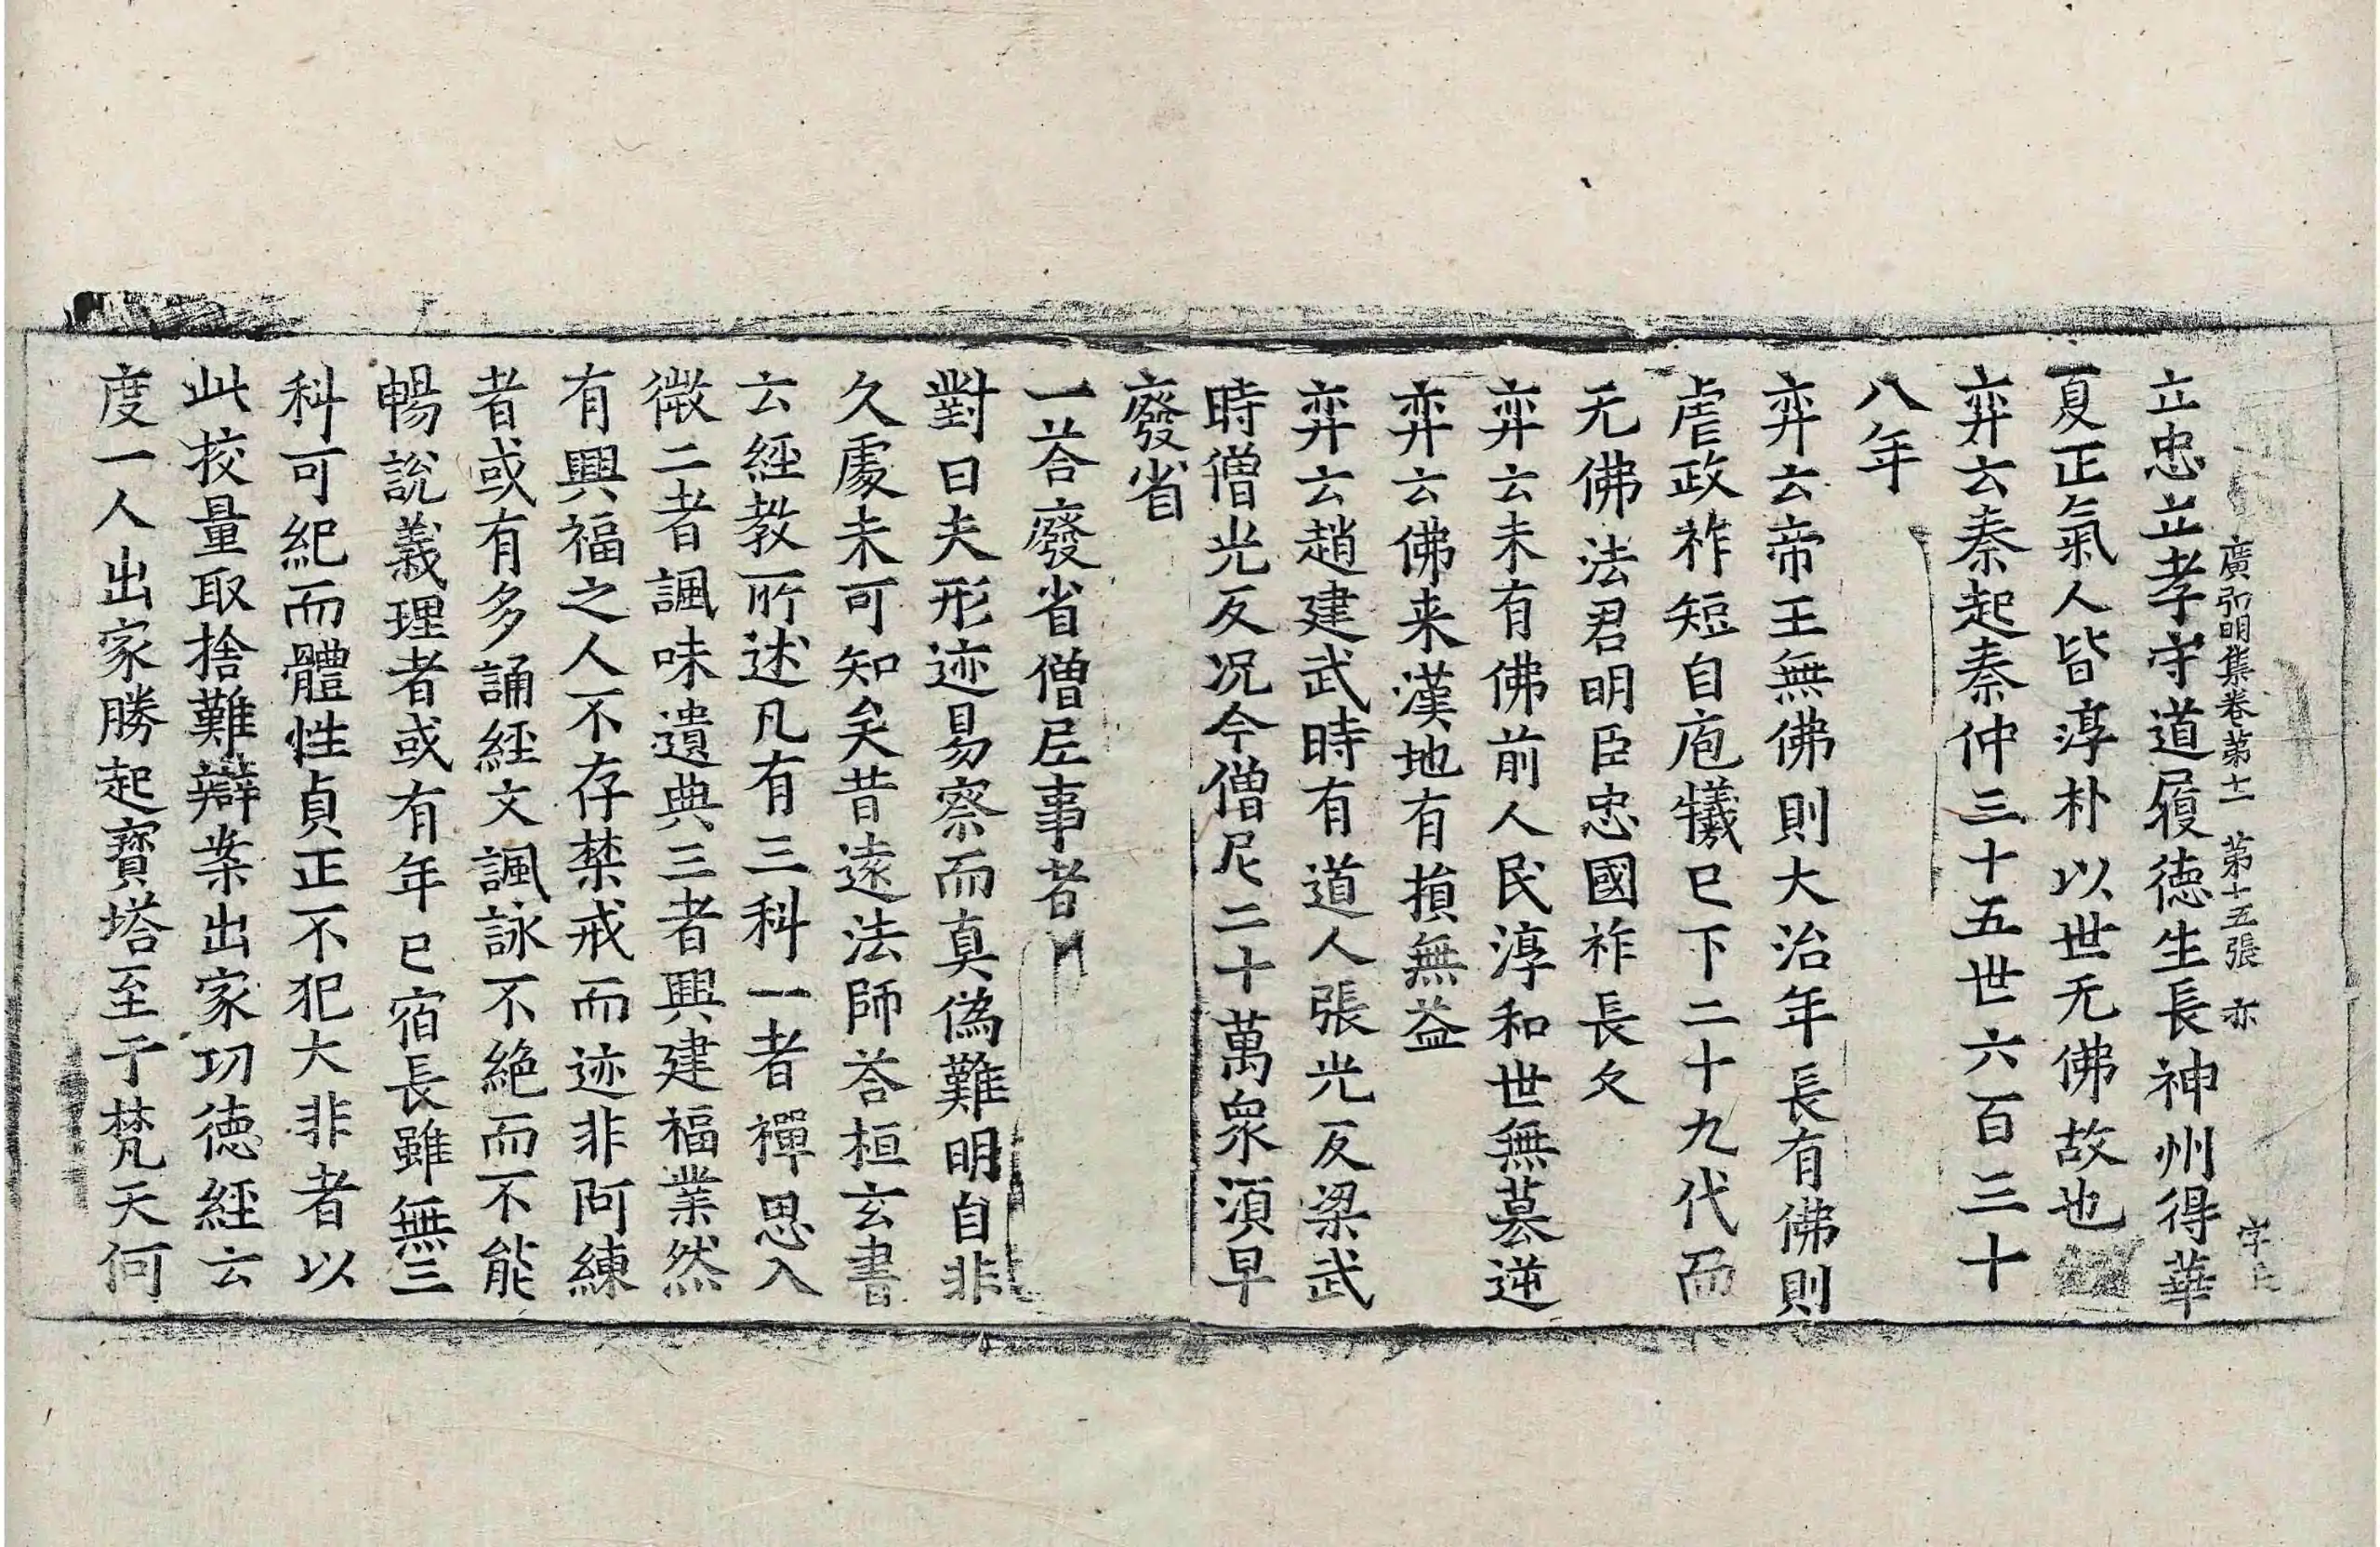 廣弘明集卷第十一 第十五張 亦
立忠立孝守道履德生長神州得華
夏正氣人皆淳朴以世无佛故也
弈云秦起秦仲三十五世六百三十
八年
弈云帝王無佛則大治年長有佛則
虐政祚短自庖犧已下二十九代而
无佛法君明臣忠國祚長久
弈云未有佛前人民淳和世無篡逆
弈云佛来漢地有損無益
弈云趙建武時有道人張光反梁武
時僧光反况今僧尼二十萬衆須早
廢省
一荅廢省僧尼事者
對曰夫形迹易察而真偽難明自非
久處未可知矣昔遠法師荅桓玄書
云經教所述凡有三科一者禪思入
微二者諷味遺典三者興建福業然
有興福之人不存禁戒而迹非阿練
者或有多誦經文諷詠不絶而不能
暢說義理者或有年已宿長雖無三
科可紀而體性貞正不犯大非者以
此挍量取捨難辯案出家功德經云
度一人出家勝起寶塔至于梵天何